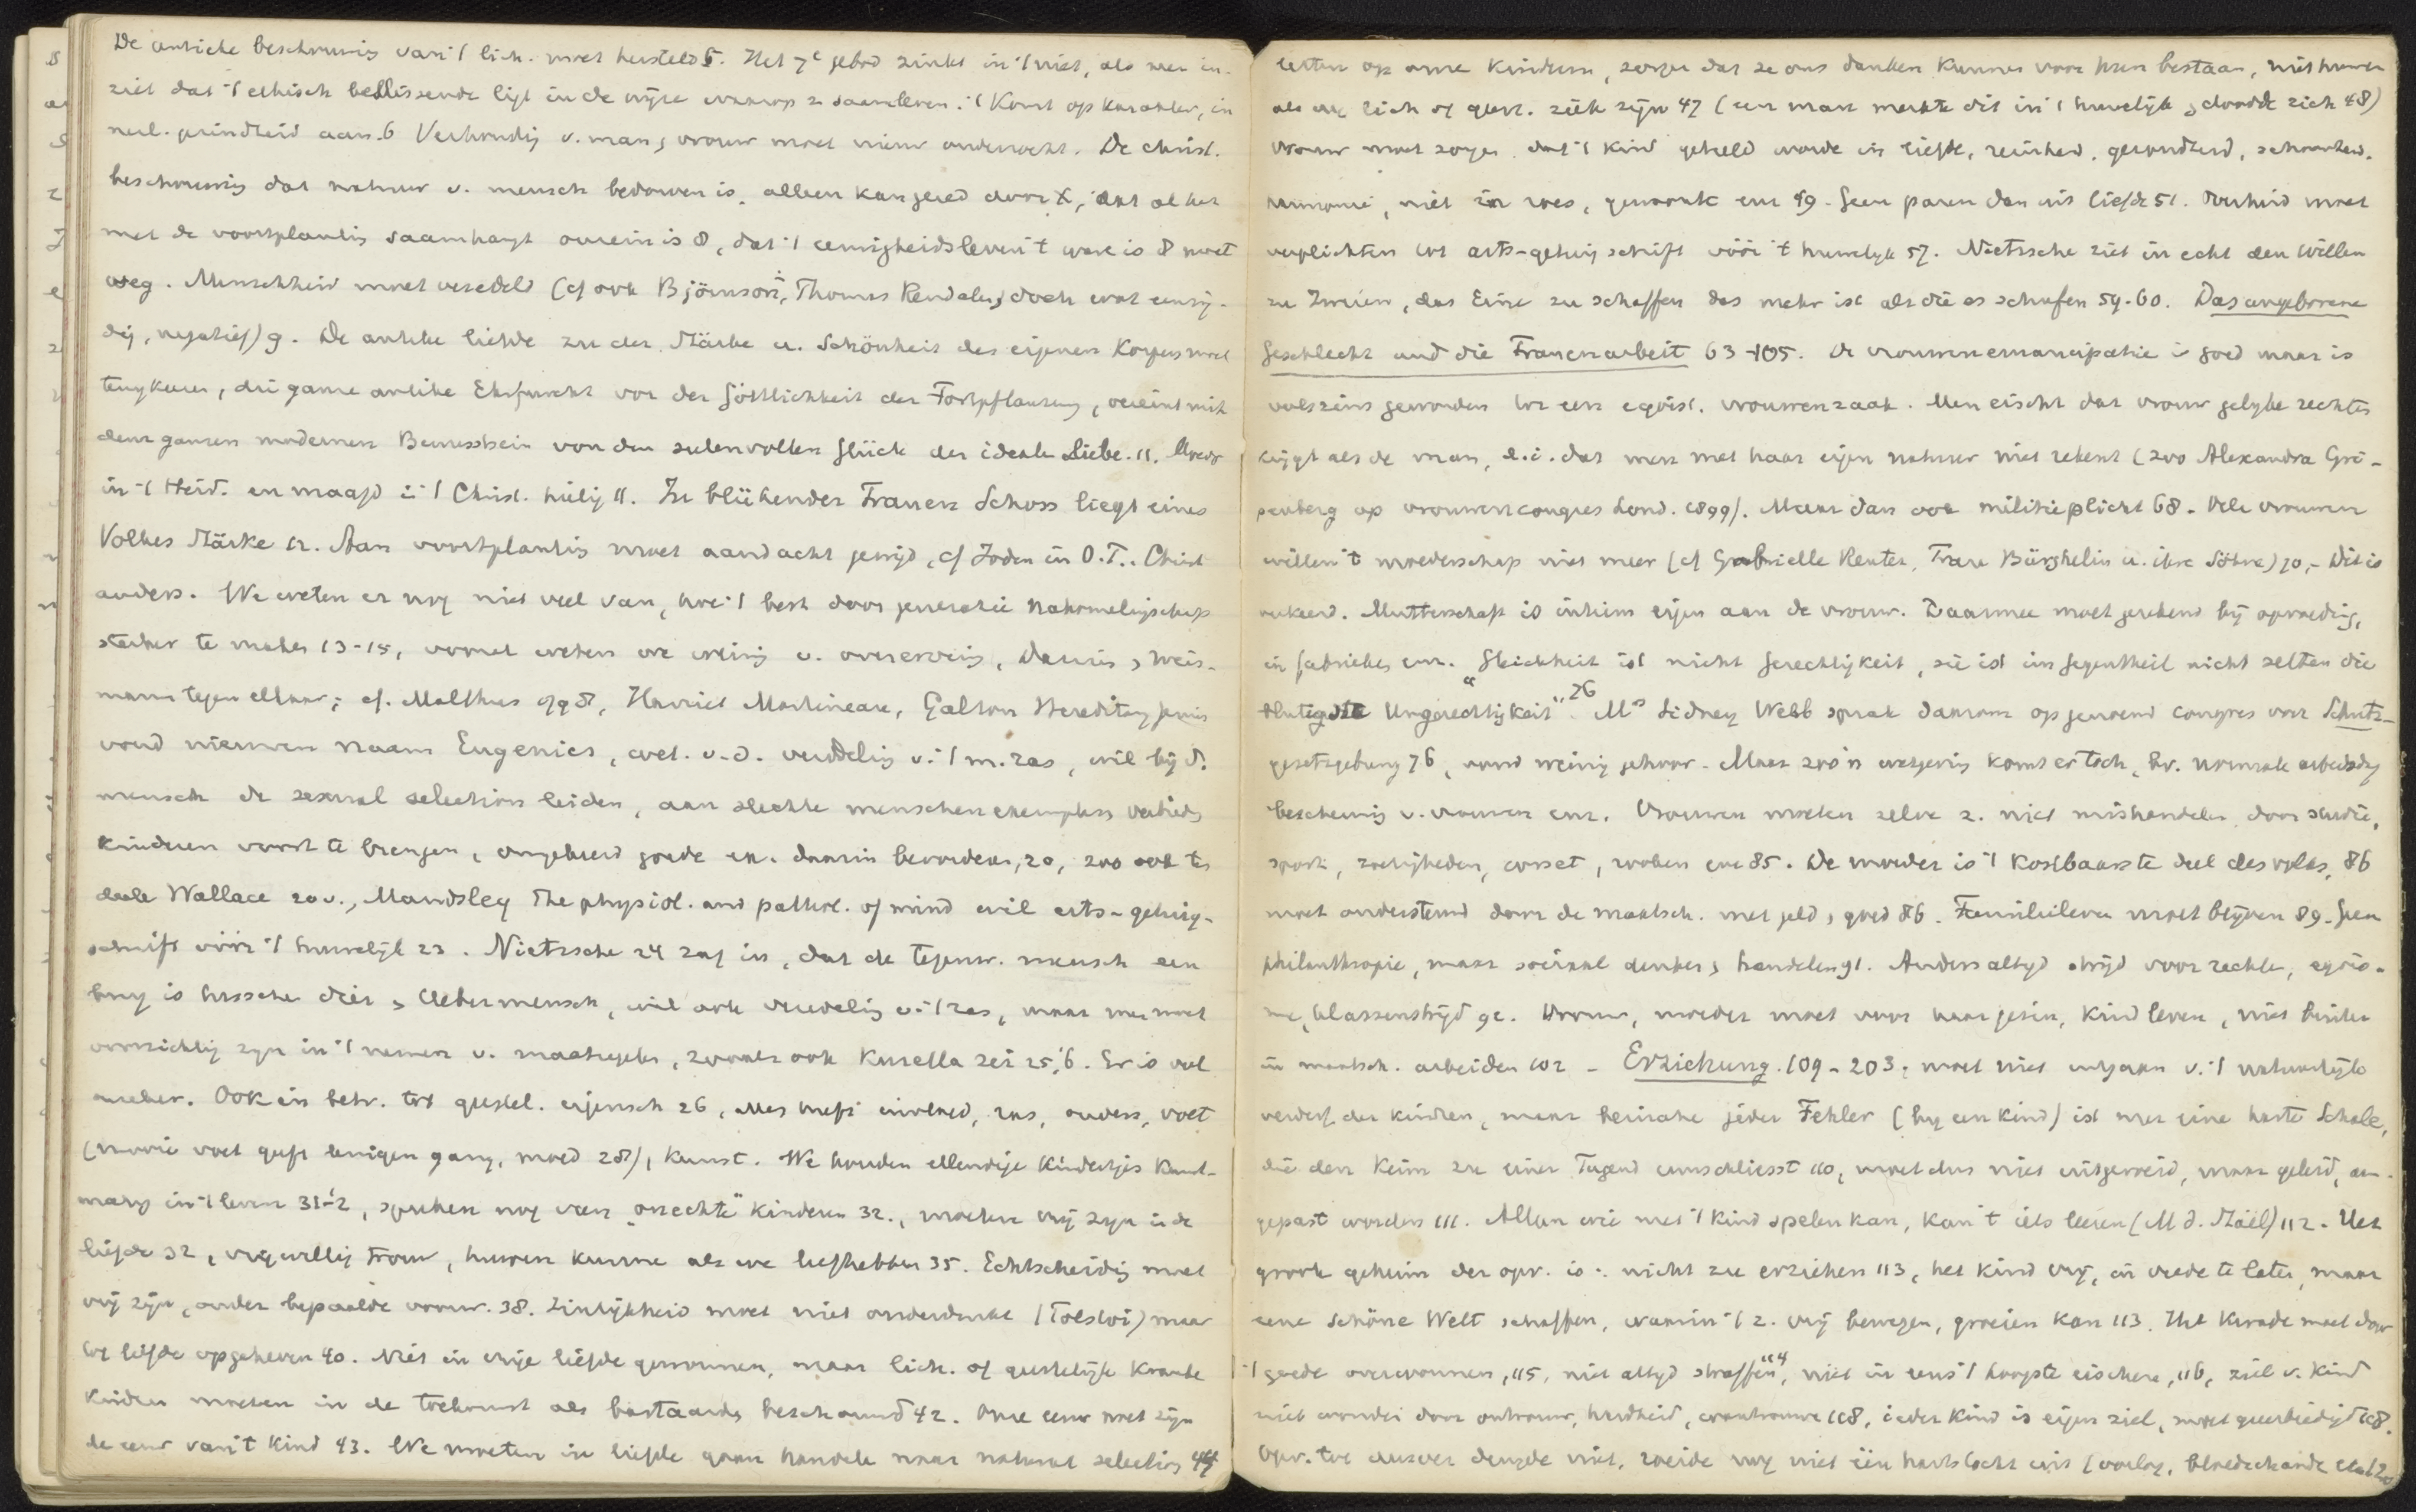 De antieke beschouwing van 't lich. moet hersteld 5. Het 7e gebod zinkt in 't niet, als men in-
ziet dat 't ethisch beslissende ligt in de wijze waarop z. saamleven. 't Komt op karakter, in
verl. gezindheid aan. 6 Verhouding v. man, vrouw moet nieuw onderzocht. De christ.
beschouwing dat natuur v. mensch bedorven is, alleen kan gered door X, dat al het
met de voortplanting saamhangt onrein is 8, dat 't eenigheidsleven 't ware is 8 moet
weg. Menschheid moet veredeld (cf ook Björnson, Thomas Rendalen, doch wat eenzij-
dig, negatief) 9. De antike liebde zu der Stärke u. Schönheit des eigenen Körpers moet
terugkeeren, die ganze antike Ehrfurcht vor der Göttlichkeit der Fortpflanzung, vereint mit
dem ganzen modernen Bewusstsein von dem seelenvollen Glück der idealen Liebe. 11. Moeder
in 't Heid. en maagd in 't Christ. heilig 11. In blühender Frauen Schoss liegt eines
Volkes Stärke 12. Aan voortplanting moet aandacht gewijd, cf Joden in O.T. Christ
anders. We weten er nog niet veel van, hoe 't best door generatie nakomelingschap
sterker te maken 13-15, vooral weten we weinig v. overerving, Darwin, Weis-
mann tegen elkaar; cf. Malthus 1798, Harriet Martineau, Galton Hereditary genius
vond nieuwen naam Eugenics, wet. v.d. veredeling v. 't m. ras, wil bij d.
mensch de sexual selection leiden, aan slechte menschenexemplaren verbieden
kinderen voort te brengen, omgekeerd goede ex. daarin bevorderen, 20, zoo ook ten
deele Wallace 20 v., Maudsley The physiol. and pathol. of mind wil arts-getuig-
schrift vóór 't huwelijk 23. Nietzsche 24 zag in, dat de tegenw. mensch een
brug is tusschen dier, Uebermensch, wil ook veredeling v. 't ras, maar men moet
voorzichtig zijn in 't nemen v. maatregelen, zooals ook Kurella zei 25, 6. Er is veel
onzeker. Ook in betr. tot geestel. eigensch 26, alles heeft invloed, ras, ouders, voet
kunst. We houden ellendige kindertjes kunst-
matig in 't leven 31-2, spreken nog van „onechte" kinderen 32., moeten vrij zijn in de
liefde 32, vrijwillig trouw, huwen kunnen als we liefhebben 35. Echtscheiding moet
vrij zijn, onder bepaalde voorw. 38. Zinlijkheid moet niet onderdrukt (Tolstoi) maar
tot liefde opgeheven 40. Niet in vrije liefde gewonnen, maar lich. of geestelijk kranke
kinderen moeten in de toekomst als bastaards beschouwd 42. Onze eeuw moet zijn
de eeuw van 't kind 43. We moeten in liefde gaan handelen naar natural selection 44
letten op onze kinderen, zorgen dat ze ons danken kunnen voor hun bestaan, niet huwen
als we lich of geest. ziek zijn 47 (een man merkte dit in 't huwelijk, doodde zich 48)
Vrouw moet zorgen dat 't kind geteeld worde in liefde, reinheid, gezondheid, schoonheid,
harmonie, niet in roes, gewoonte enz 49. Geen paren dan uit liefde 51. Overheid moet
verplichten tot arts-getuigschrift vóór 't huwelijk 57. Nietzsche ziet in echt den Willen
zu Zweien, das Eine zu schaffen das mehr ist als die es schufen 59-60. Das ungeborene
Geschlecht und die Frauenarbeit 63-105. De vrouwenemancipatie is goed maar is
valszins geworden tot een egoïst. vrouwenzaak. Men eischt dat vrouw gelijke rechten
krijgt als de man, d.i. dat men met haar eigen natuur niet rekent (zoo Alexandra Gri-
penberg op vrouwencongres Lond. 1899). Maar dan ook militieplicht 68. Vele vrouwen
willen 't moederschap niet meer (cf Gabrielle Reuter, Frau Bürgelin u. ihre Söhne) 70, - Dit is
verkeerd. Mutterschaft is intiem eigen aan de vrouw. Daarmee moet gerekend bij opvoeding,
in fabrieken enz. "Gleichheit ist nicht Gerechtigkeit, sie ist im Gegentheil nicht selten die
blutigste Ungerechtigkeit" 76. Mrs Sidney Webb sprak daarom op genoemd congres voor Schutz-
gesetzgebung 76, vond weinig gehoor. Maar zoo'n wetgeving komt er toch, bv. normale arbeidsdag
bescherming v. vrouwen enz. Vrouwen moeten zelve z. niet mishandelen door studie,
sport, corset, enz 85. De moeder is 't kostbaarste deel des volks, 86
moet ondersteund door de maatsch. met geld, goed 86. Familieleven moet blijven 89. Geen
philanthropie, maar sociaal denken, handelen 91. Anders altijd strijd voor rechten, egoïs-
me, klassenstrijd 92. Vrouw, moeder moet voor haar gezin, kind leven, niet buiten
in maatsch. arbeiden 102 - Erziehung. 109-203; moet niet uitgaan v. 't natuurlijk
verderf der kinderen, maar beinahe jeder Fehler (bij een kind) ist nur eine harte Schale,
die den Keim zu einer Tugend umschliesst 110, moet dus niet uitgeroeid, maar geleid, aan-
gepast worden 111. Alleen wie met 't kind spelen kan, kan 't iets leeren (M. d. Staël) 112. Het
groote geheim der opv. is: nicht zu erziehen 113, het kind vrij, in vrede te laten, maar
eene schöne Welt schaffen, waarin 't z. vrij bewegen, groeien kan 113. Het kwade moet door
't goede overwonnen, 115, niet altijd straffen 114, niet in eens 't hoogste eischen, 116, ziel v. kind
niet wonden door ontrouw, hardheid, wantrouwen 118, ieder kind is eigen ziel, moet geëerbiedigd 118.
Opv. tot dusver deugde niet, roeide nog niet één hartstocht uit (oorlog, bloedschande